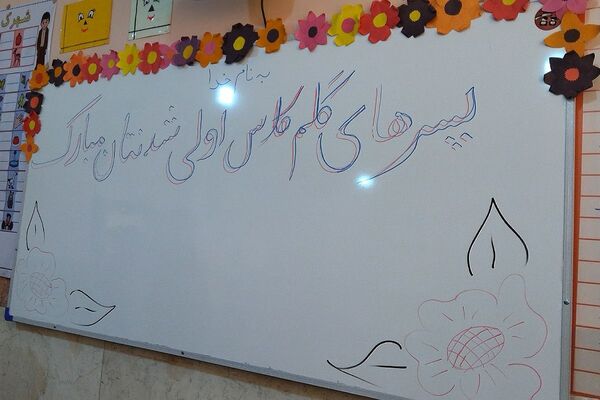 به نام خدا
پسرهای گلم کلاس اولی شدنتان مبارک